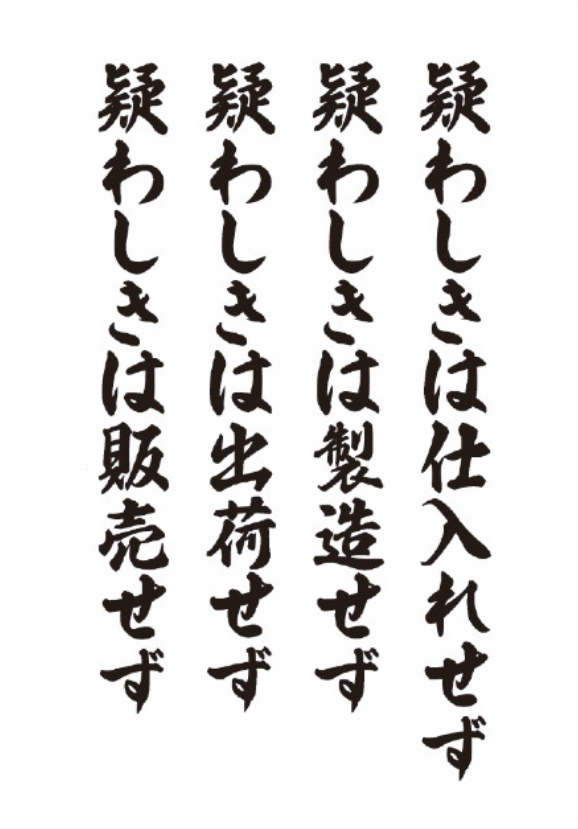 疑わしきは仕入れせず
疑わしきは製造せず
疑わしきは出荷せず
疑わしきは販売せず